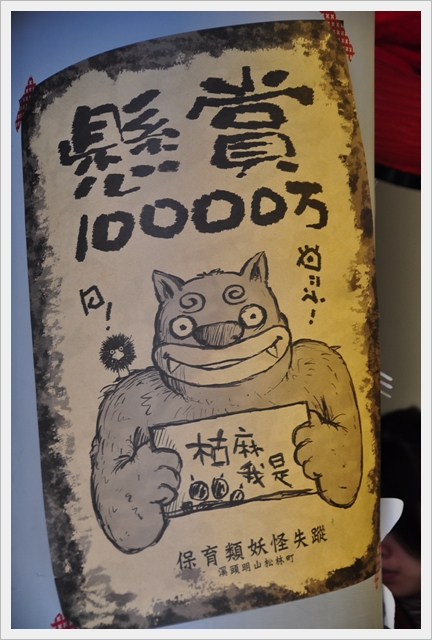 懸賞
10000万
枯麻
我是
保育類妖怪失蹤
溪頭明山松林町